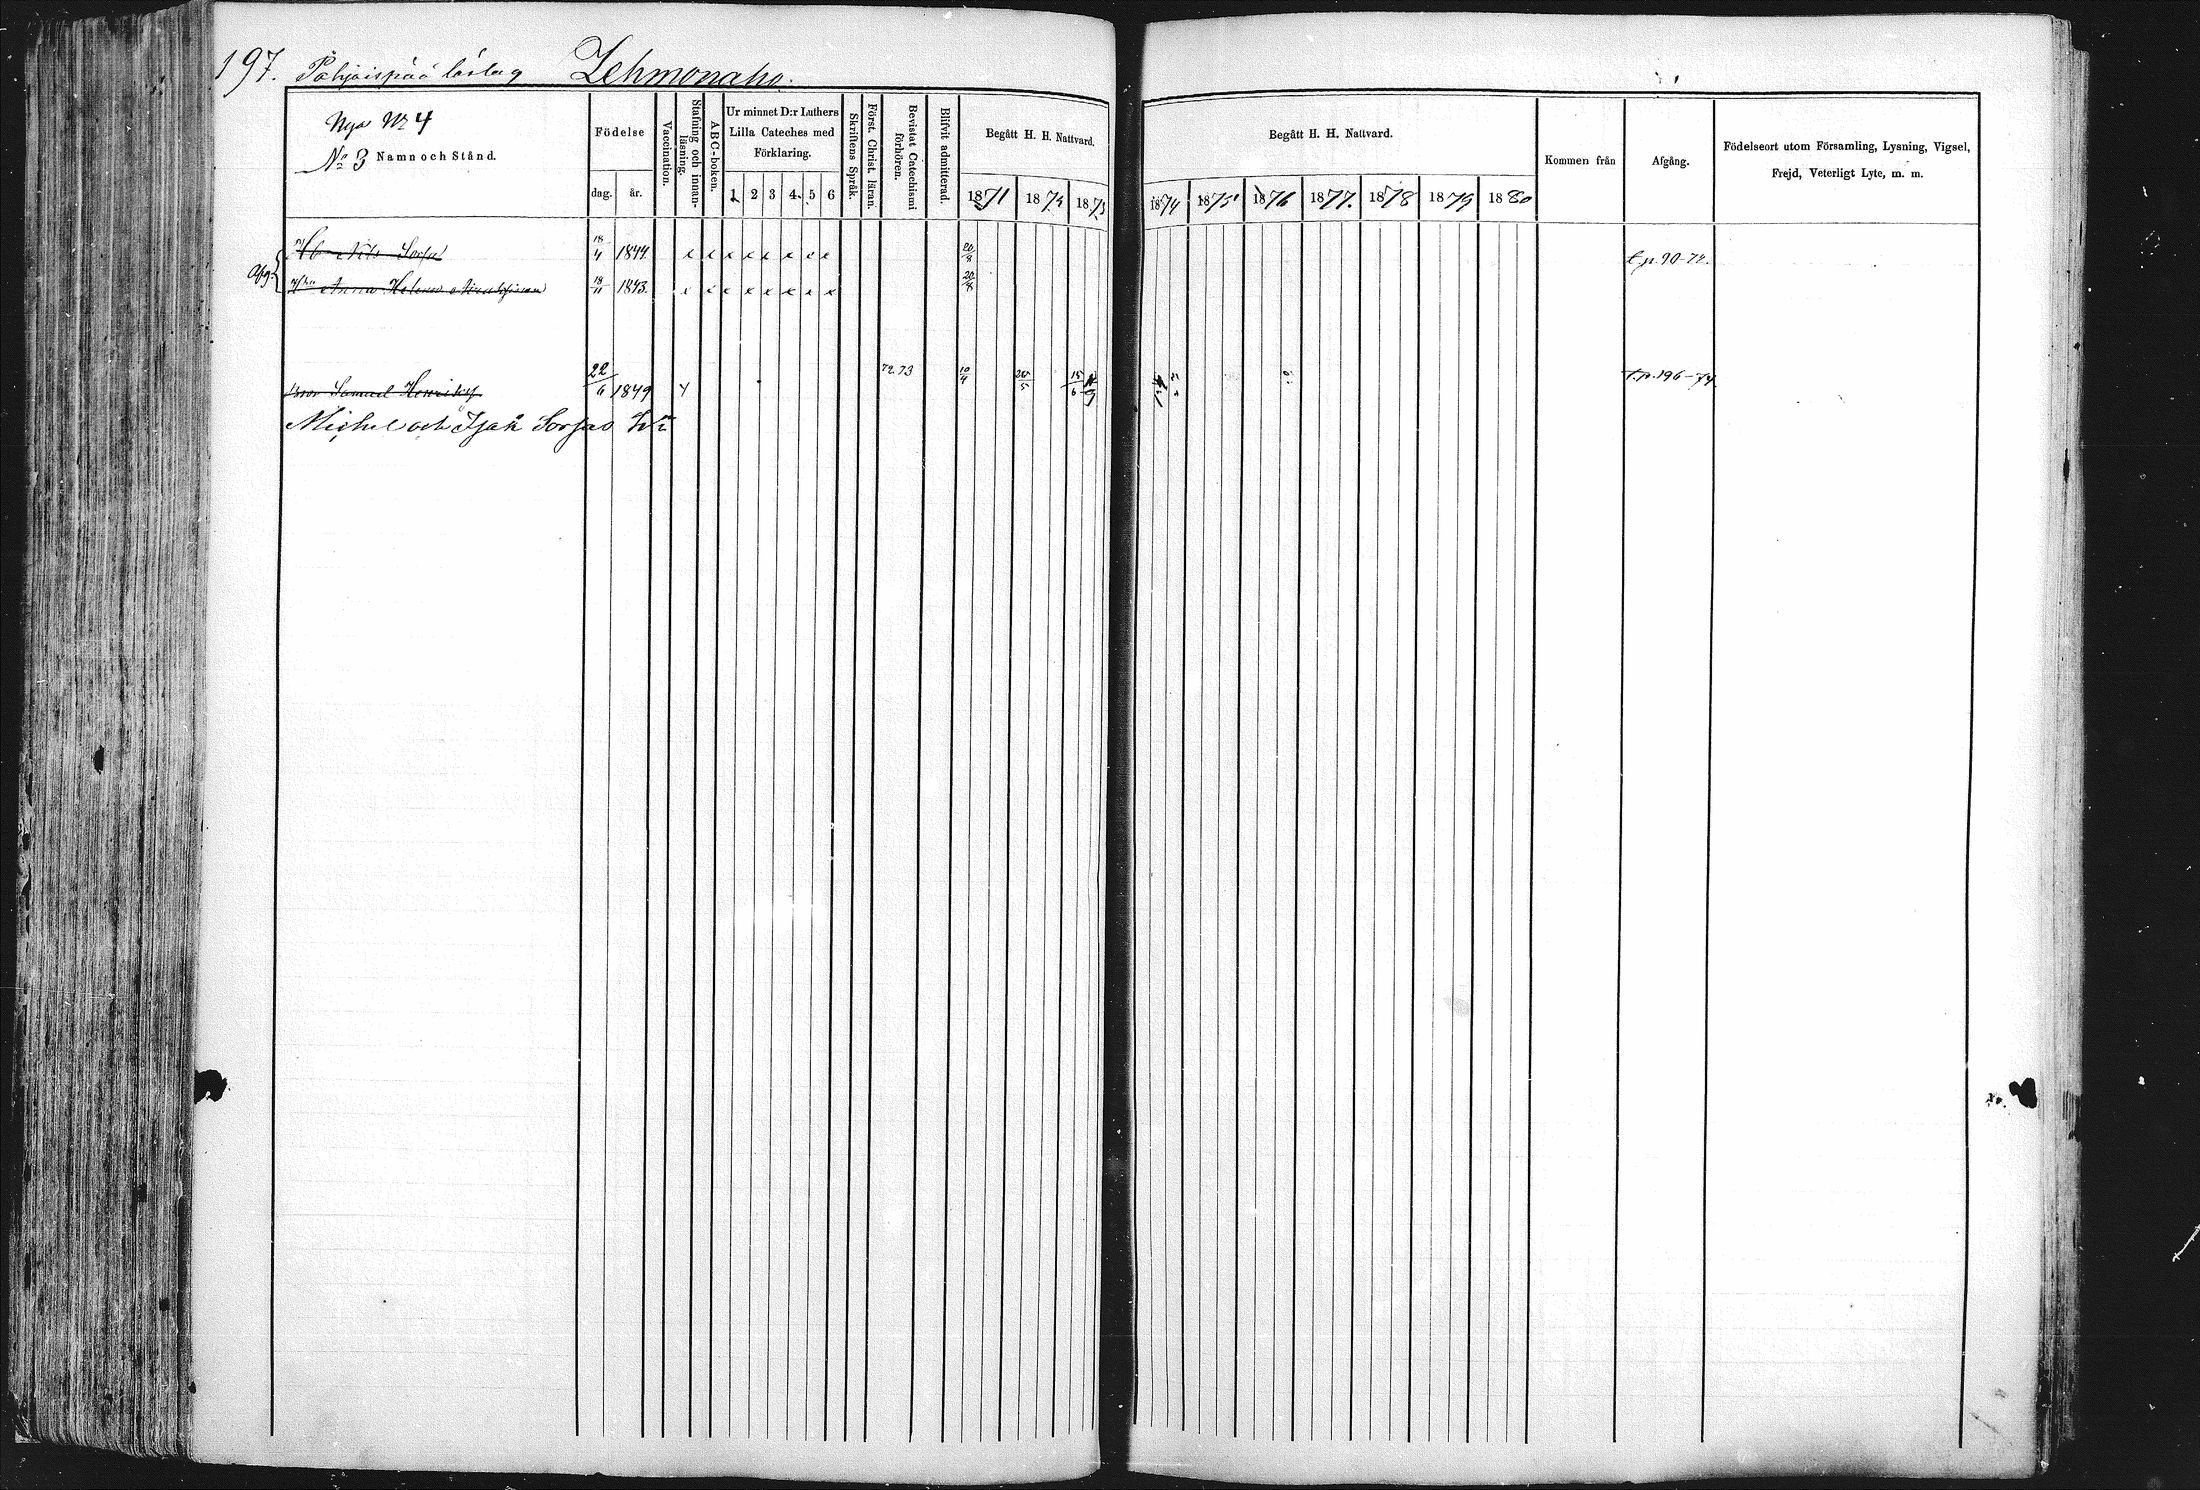 197. Pohjoispää låstag Lehmonaho.
Nya No 4
No 3 Namn och Stånd.
Födelse
dag. år.
Vaccination.
Stafning och innanläsning.
ABC-boken.
Ur minnet D:r Luthers
Lilla Cateches med
Förklaring.
1 2 3 4 5 6
Skriftens Språk.
Först. Christ. läran.
Bevistat Catechismi förhören.
Blifvit admitterad.
Begått H. H. Nattvard.
1871 1872 1873
Begått H. H. Nattvard.
1874 1875 1876 1877. 1878 1879 1880
Kommen från
Afgång.
Födelseort utom Församling, Lysning, Vigsel,
Frejd, Veterligt Lyte, m. m.
Afg. Nils Sorsa 18/4 1844. x x x x x x x x 20/8 t.p. 90-72.
Anna Helena 18/11 1843. x x x x x x x x 20/8
Samuel Henrikss 22/6 1849 72.73 10/4 20/5 15/6 t.p. 196-74
Michel och Isak Sorsas